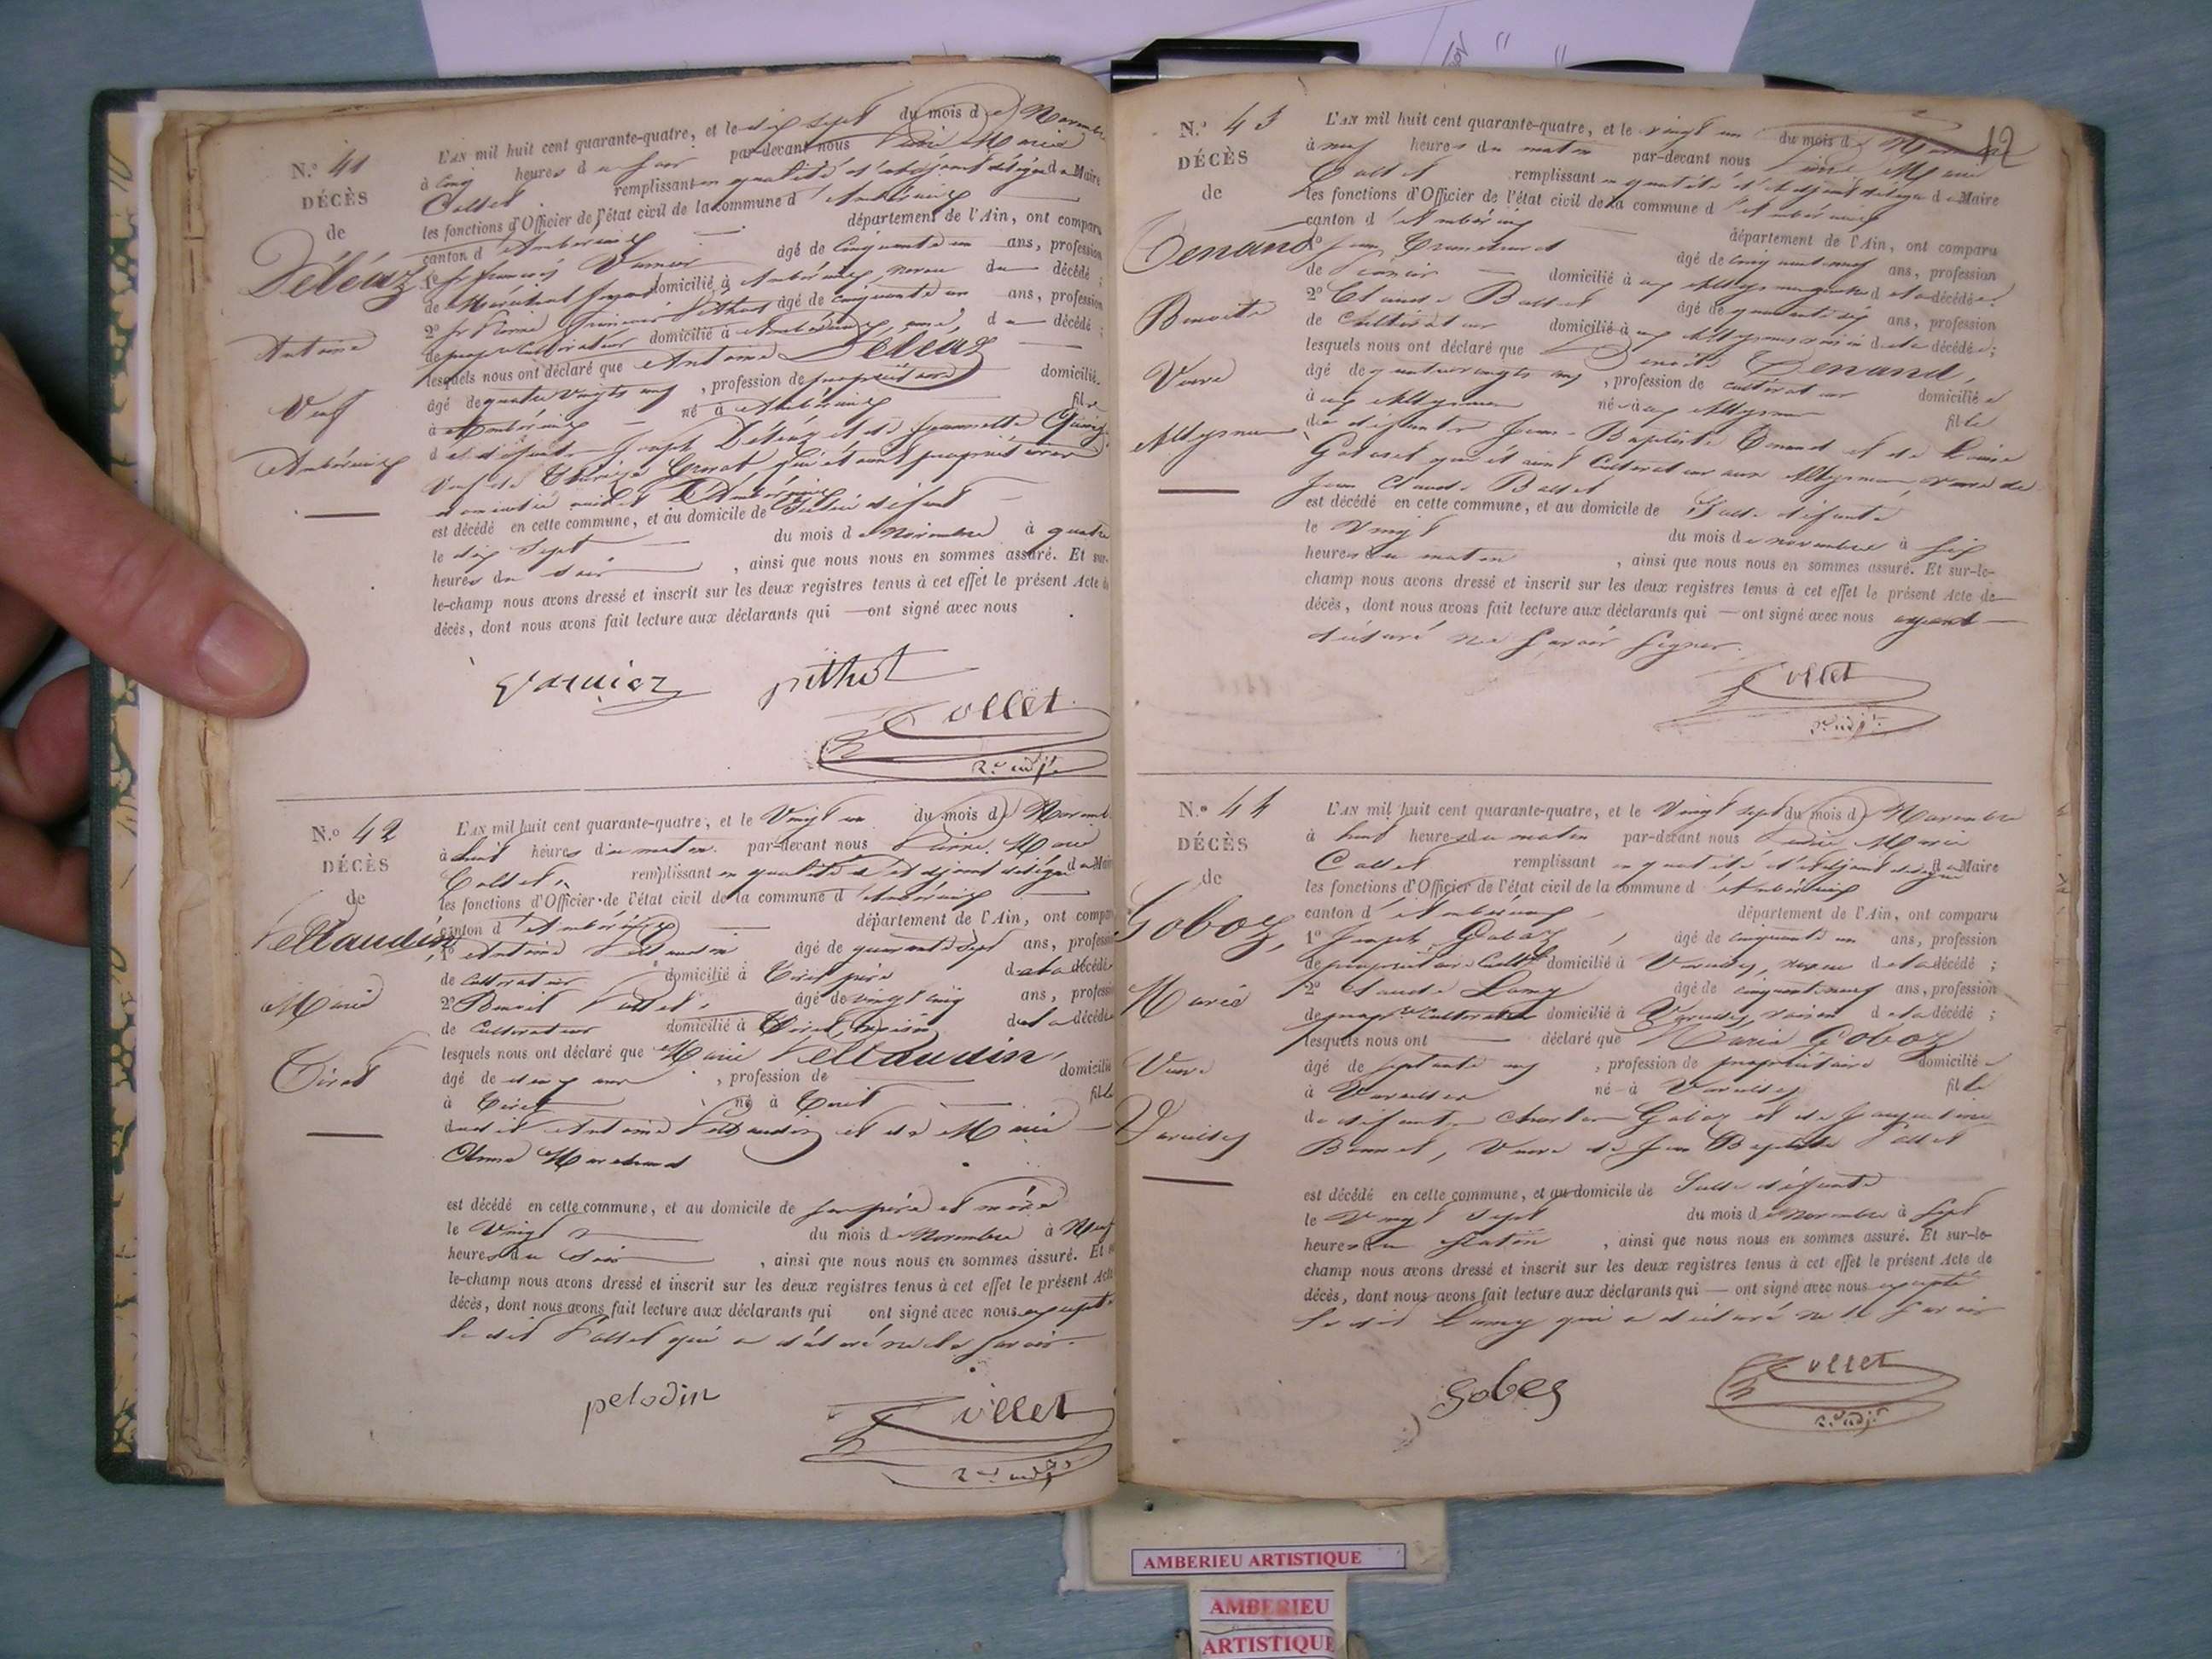 N.° 41
DÉCÈS
de
Déléaz
Antoine
Veuf
Ambérieux
L'AN mil huit cent quarante-quatre, et le dix sept du mois de Novembre
à cinq heures du soir par-devant nous Pierre Marie
Collet remplissant en qualité d'adjoint délégué du Maire
les fonctions d'Officier de l'état civil de la commune d'Ambérieux
canton d'Ambérieux département de l'Ain, ont comparu
1° françois Varnier âgé de Cinquante un ans, profession
de Maréchal domicilié à Ambérieux, neveu du décédé;
2° Pierre Pithot âgé de cinquante un ans, profession
de cultivateur domicilié à Ambérieux, ami du décédé;
lesquels nous ont déclaré que Antoine Déléaz
âgé de quatre vingts , profession de propriétaire domicilié
à Ambérieux né à Ambérieux fils
de défunts Joseph Déléaz et de Jeannette
veuf de qui étaient propriétaires
est décédé en cette commune, et au domicile de défunt
le dix Sept du mois de Novembre à quatre
heures du soir , ainsi que nous nous en sommes assuré. Et sur-
le-champ nous avons dressé et inscrit sur les deux registres tenus à cet effet le présent Acte de
décès, dont nous avons fait lecture aux déclarants qui ont signé avec nous
Varnier pithot
Collet
2e adjt
N.° 42
DÉCÈS
de
Pellaudin,
Marie
Tiret
L'AN mil huit cent quarante-quatre, et le Vingt un du mois de Novembre
à huit heures du matin par-devant nous Pierre Marie
Collet, remplissant en qualité d'Adjoint délégué du Maire
les fonctions d'Officier de l'état civil de la commune d'Ambérieux
canton d'Ambérieux département de l'Ain, ont comparu
1° Antoine Pellaudin âgé de quarante sept ans, profession
de Cultivateur domicilié à Tiret père de la décédée
2° Benoit âgé de vingt cinq ans, profession
de Cultivateur domicilié à Tiret, voisin de la décédée
lesquels nous ont déclaré que Marie Pellaudin,
âgé de ans , profession de domicilié
à Tiret né à Tiret fille
dudit Antoine Pellaudin et de Marie
Anne Marchand
est décédé en cette commune, et au domicile de ses père et mère
le Vingt du mois de Novembre à Neuf
heures du Soir , ainsi que nous nous en sommes assuré. Et
le-champ nous avons dressé et inscrit sur les deux registres tenus à cet effet le présent Acte
décès, dont nous avons fait lecture aux déclarants qui ont signé avec nous excepté
le dit qui a déclaré ne le savoir.
pelodin
Collet
2me adjt
12
N.° 43
DÉCÈS
de
Tenand
Benoite
Veuve
Allymes
L'AN mil huit cent quarante-quatre, et le vingt un du mois de Novembre
à neuf heures du matin par-devant nous Pierre Marie
Collet remplissant en qualité d'Adjoint délégué du Maire
les fonctions d'Officier de l'état civil de la commune d'Ambérieux
canton d'Ambérieux département de l'Ain, ont comparu
1° Jean âgé de cinquante neuf ans, profession
de domicilié à aux Allymes de la décédée;
2° Claude Ballet âgé de quarante six ans, profession
de Cultivateur domicilié à aux Allymes voisin de la décédée;
lesquels nous ont déclaré que Benoite Tenand,
âgé de quatre vingts , profession de cultivateur domiciliée
à aux Allymes née à aux Allymes fille
de défunts Jean-Baptiste Tenand et de Louise
qui étaient Cultivateurs aux Allymes, veuve de
Jean Claude Ballet
est décédé en cette commune, et au domicile de défunte
le Vingt du mois de novembre à six
heures du matin , ainsi que nous nous en sommes assuré. Et sur-le-
champ nous avons dressé et inscrit sur les deux registres tenus à cet effet le présent Acte de
décès, dont nous avons fait lecture aux déclarants qui ont signé avec nous ayant
déclaré ne savoir signer.
Collet
2e adjt
N.° 44
DÉCÈS
de
Goboz,
Marie
Veuve
Vareilles
L'AN mil huit cent quarante-quatre, et le Vingt sept du mois de Novembre
à huit heures du matin par-devant nous Pierre Marie
Collet remplissant en qualité d'adjoint délégué du Maire
les fonctions d'Officier de l'état civil de la commune d'Ambérieux
canton d'Ambérieux, département de l'Ain, ont comparu
1° Joseph Goboz, âgé de cinquante un ans, profession
de propriétaire domicilié à Vareilles, neveu de la décédé;
2° Claude Lamy âgé de cinquante neuf ans, profession
de Cultivateur domicilié à Vareilles, voisin de la décédé;
lesquels nous ont déclaré que Marie Goboz
âgé de septante , profession de propriétaire domiciliée
à Vareilles né à Vareilles fille
de défunts Charles Goboz et de Jacqueline
Bonnet, Veuve de Jean Baptiste
est décédé en cette commune, et au domicile de défunte
le Vingt Sept du mois de Novembre à sept
heures du Matin , ainsi que nous nous en sommes assuré. Et sur-le-
champ nous avons dressé et inscrit sur les deux registres tenus à cet effet le présent Acte de
décès, dont nous avons fait lecture aux déclarants qui ont signé avec nous excepté
le dit Lamy qui a déclaré ne le savoir
Gobes
Collet
2e adjt
AMBERIEU ARTISTIQUE
AMBERIEU
ARTISTIQUE